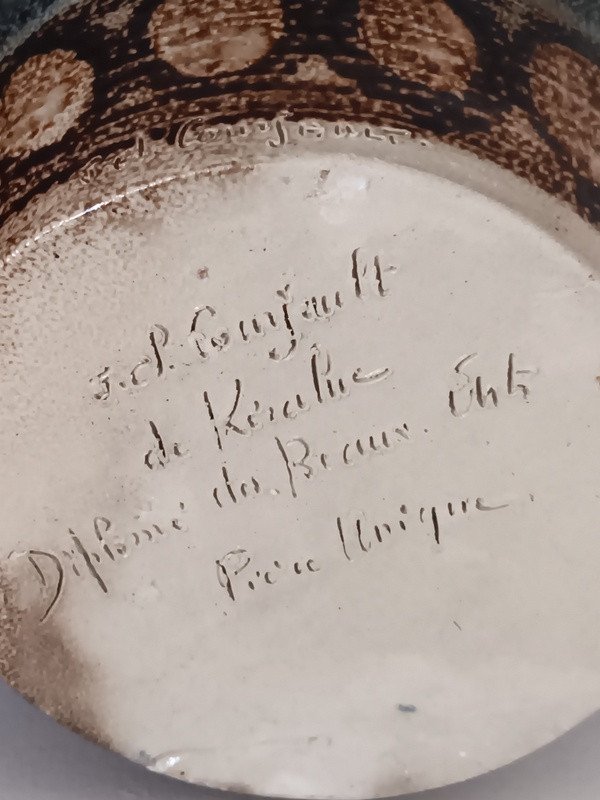 J.P. Courjault.
J.P. Courjault
de Kéraluc
Diplômé des Beaux. Arts
Pièce Unique.